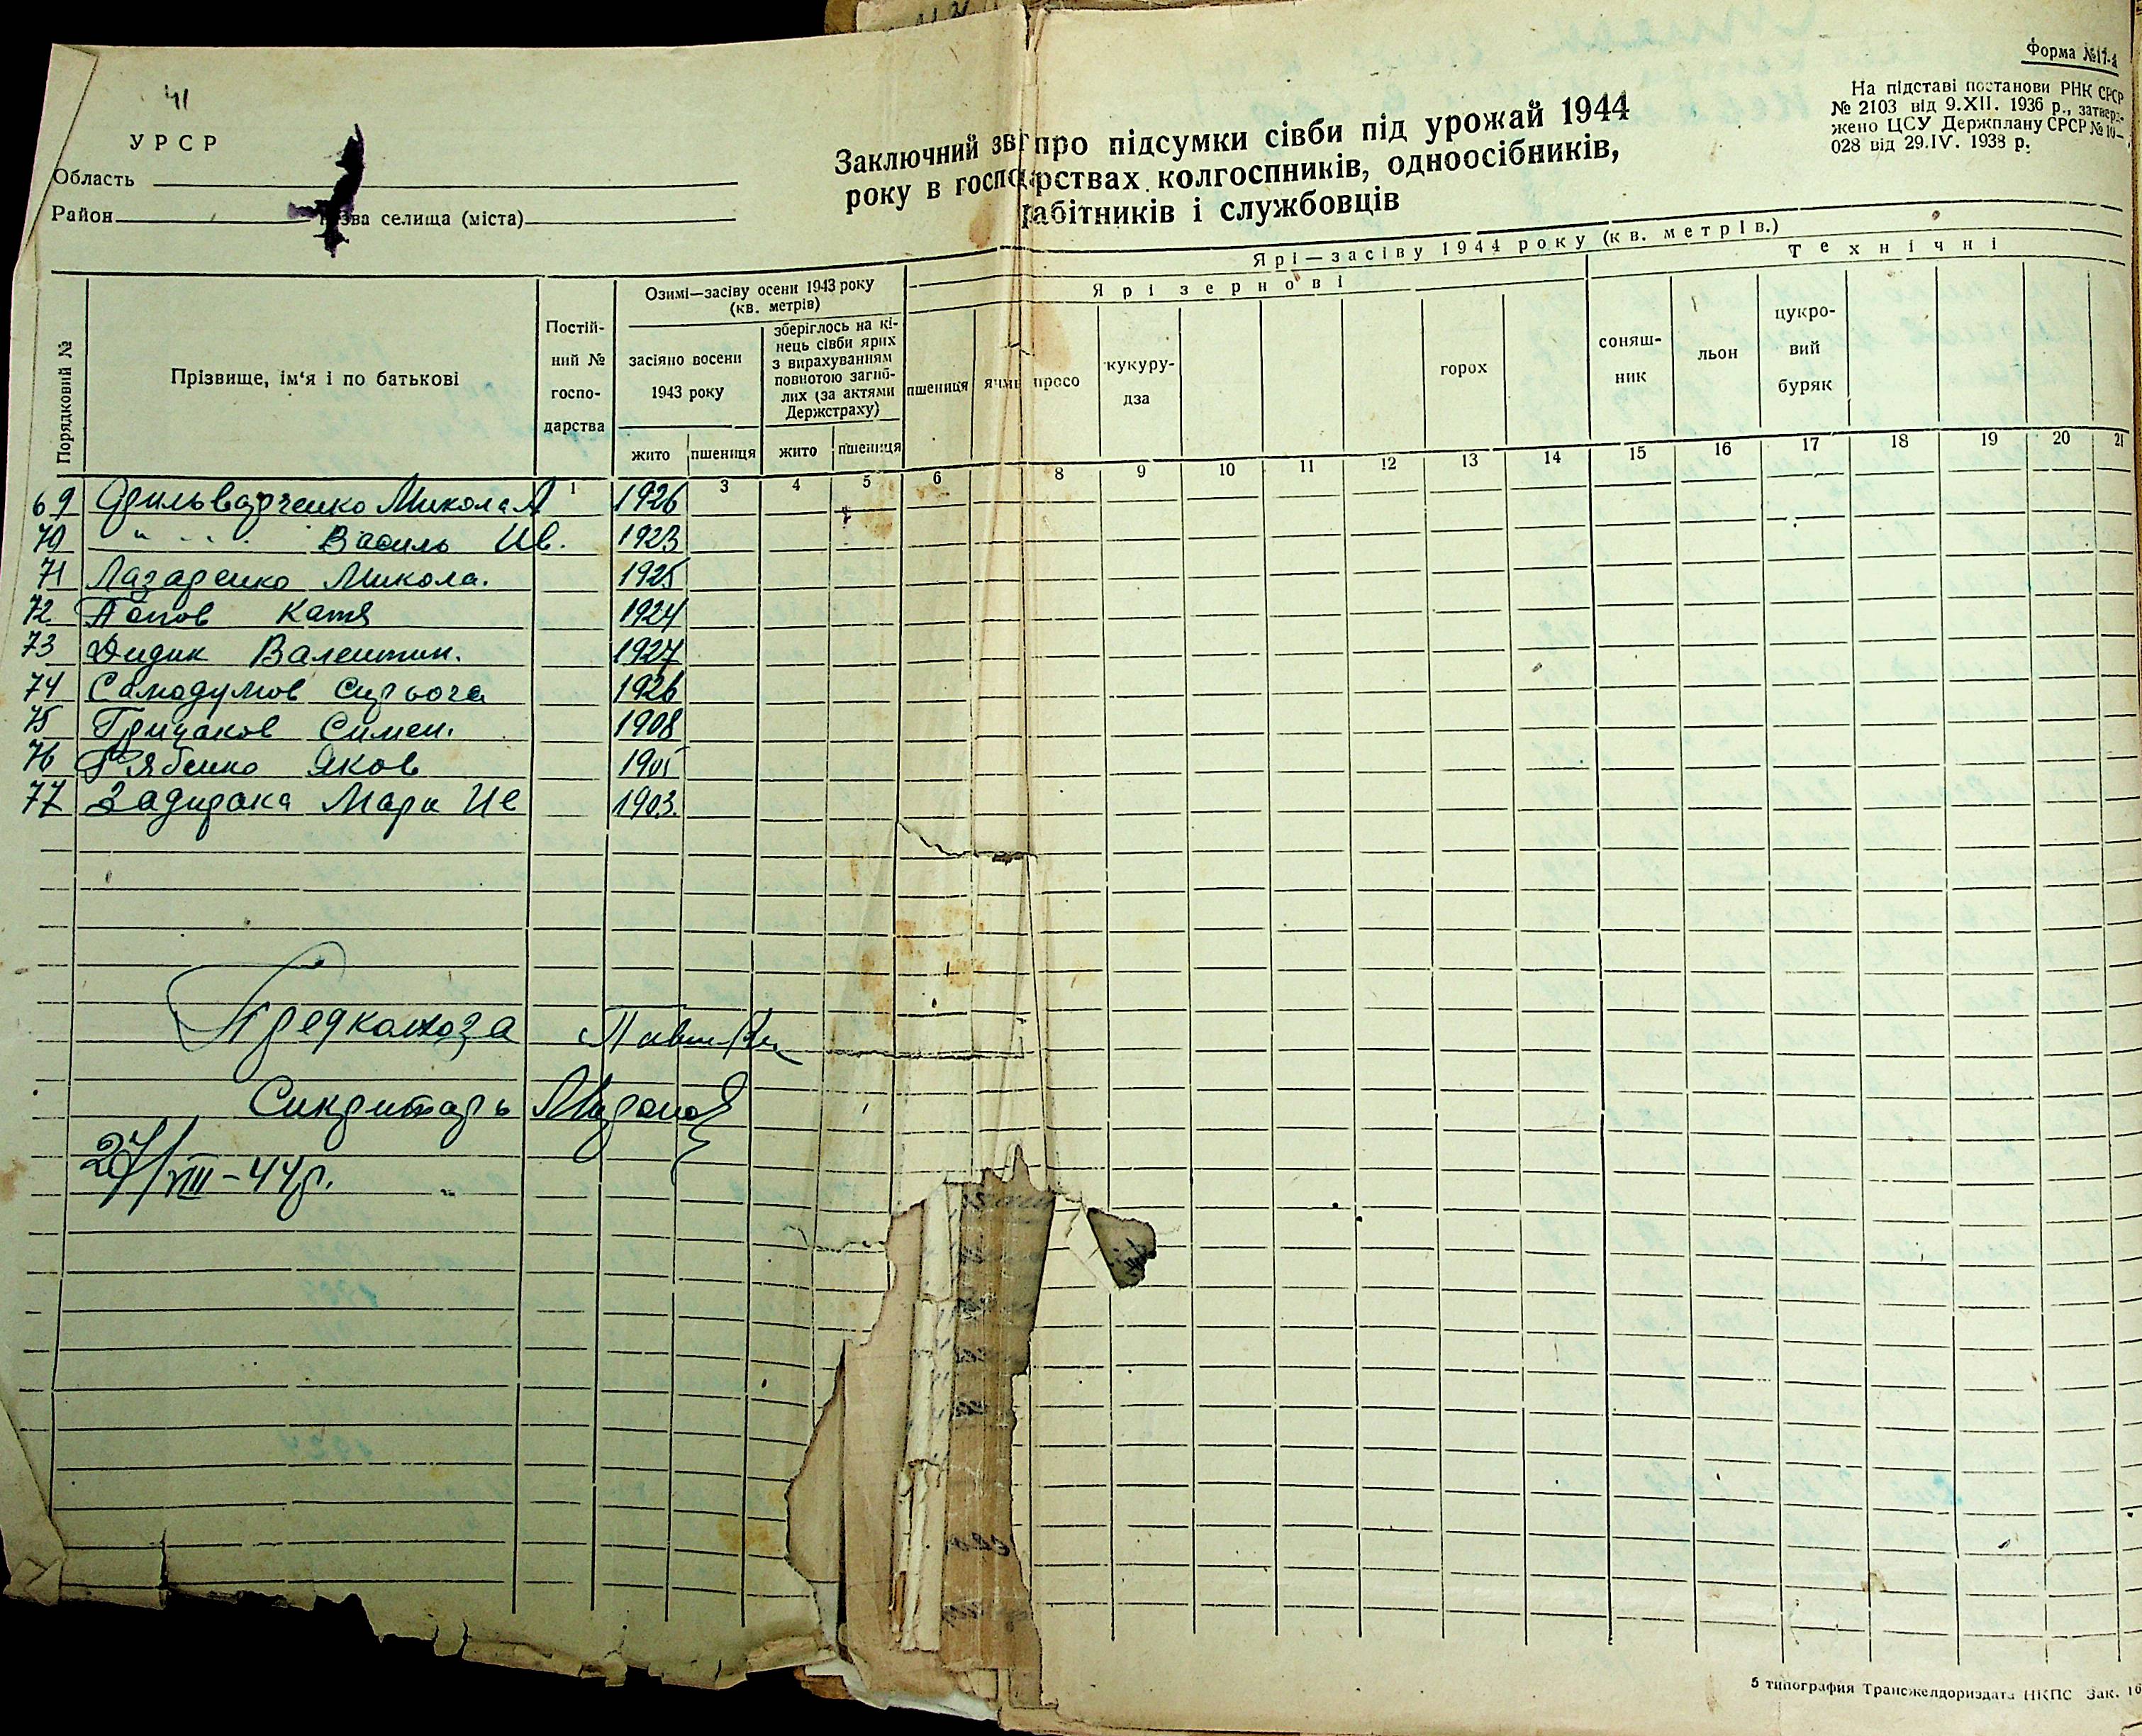 41
УРСР
Область
Район зва селища (міста)
Форма №17-а
На підставі постанови РНК СРСР
№ 2103 від 9.XII. 1936 р., затвер-
жено ЦСУ Держплану СРСР № 10-
028 від 29.IV. 1938 р.
Заключний зв про підсумки сівби під урожай 1944
року в госпо рствах колгоспників, одноосібників,
рабітників і службовців
Порядковий №
Прізвище, ім'я і по батькові
Постій-
ний №
госпо-
дарства
Озимі—засіву осени 1943 року
(кв. метрів)
засіяно восени
1943 року
зберіглось на кі-
нець сівби ярих
з вирахуванням
повнотою загиб-
лих (за актями
Держстраху)
жито пшениця жито пшениця
Ярі—засіву 1944 року (кв. метрів.)
Ярі зернові
Технічні
пшениця ячм просо
кукуру-
дза
горох
соняш-
ник
льон
цукро-
вий
буряк
1 3 4 5 6 8 9 10 11 12 13 14 15 16 17 18 19 20 21
69 Микола А 1926
70 " Василь Ив. 1923
71 Лазаренко Микола. 1925
72 Попов Катя 1924
73 Дидик Валентин. 1927
74 Самодумов Сирьожа 1926
75 Грицаков Симен. 1908
76 Рябенко Яков
77 Задирака Мари Ив 1903.
Предколхоза
Сикритарь
27/VIII-44р.
5 типография Трансжелдориздата НКПС Зак. 16